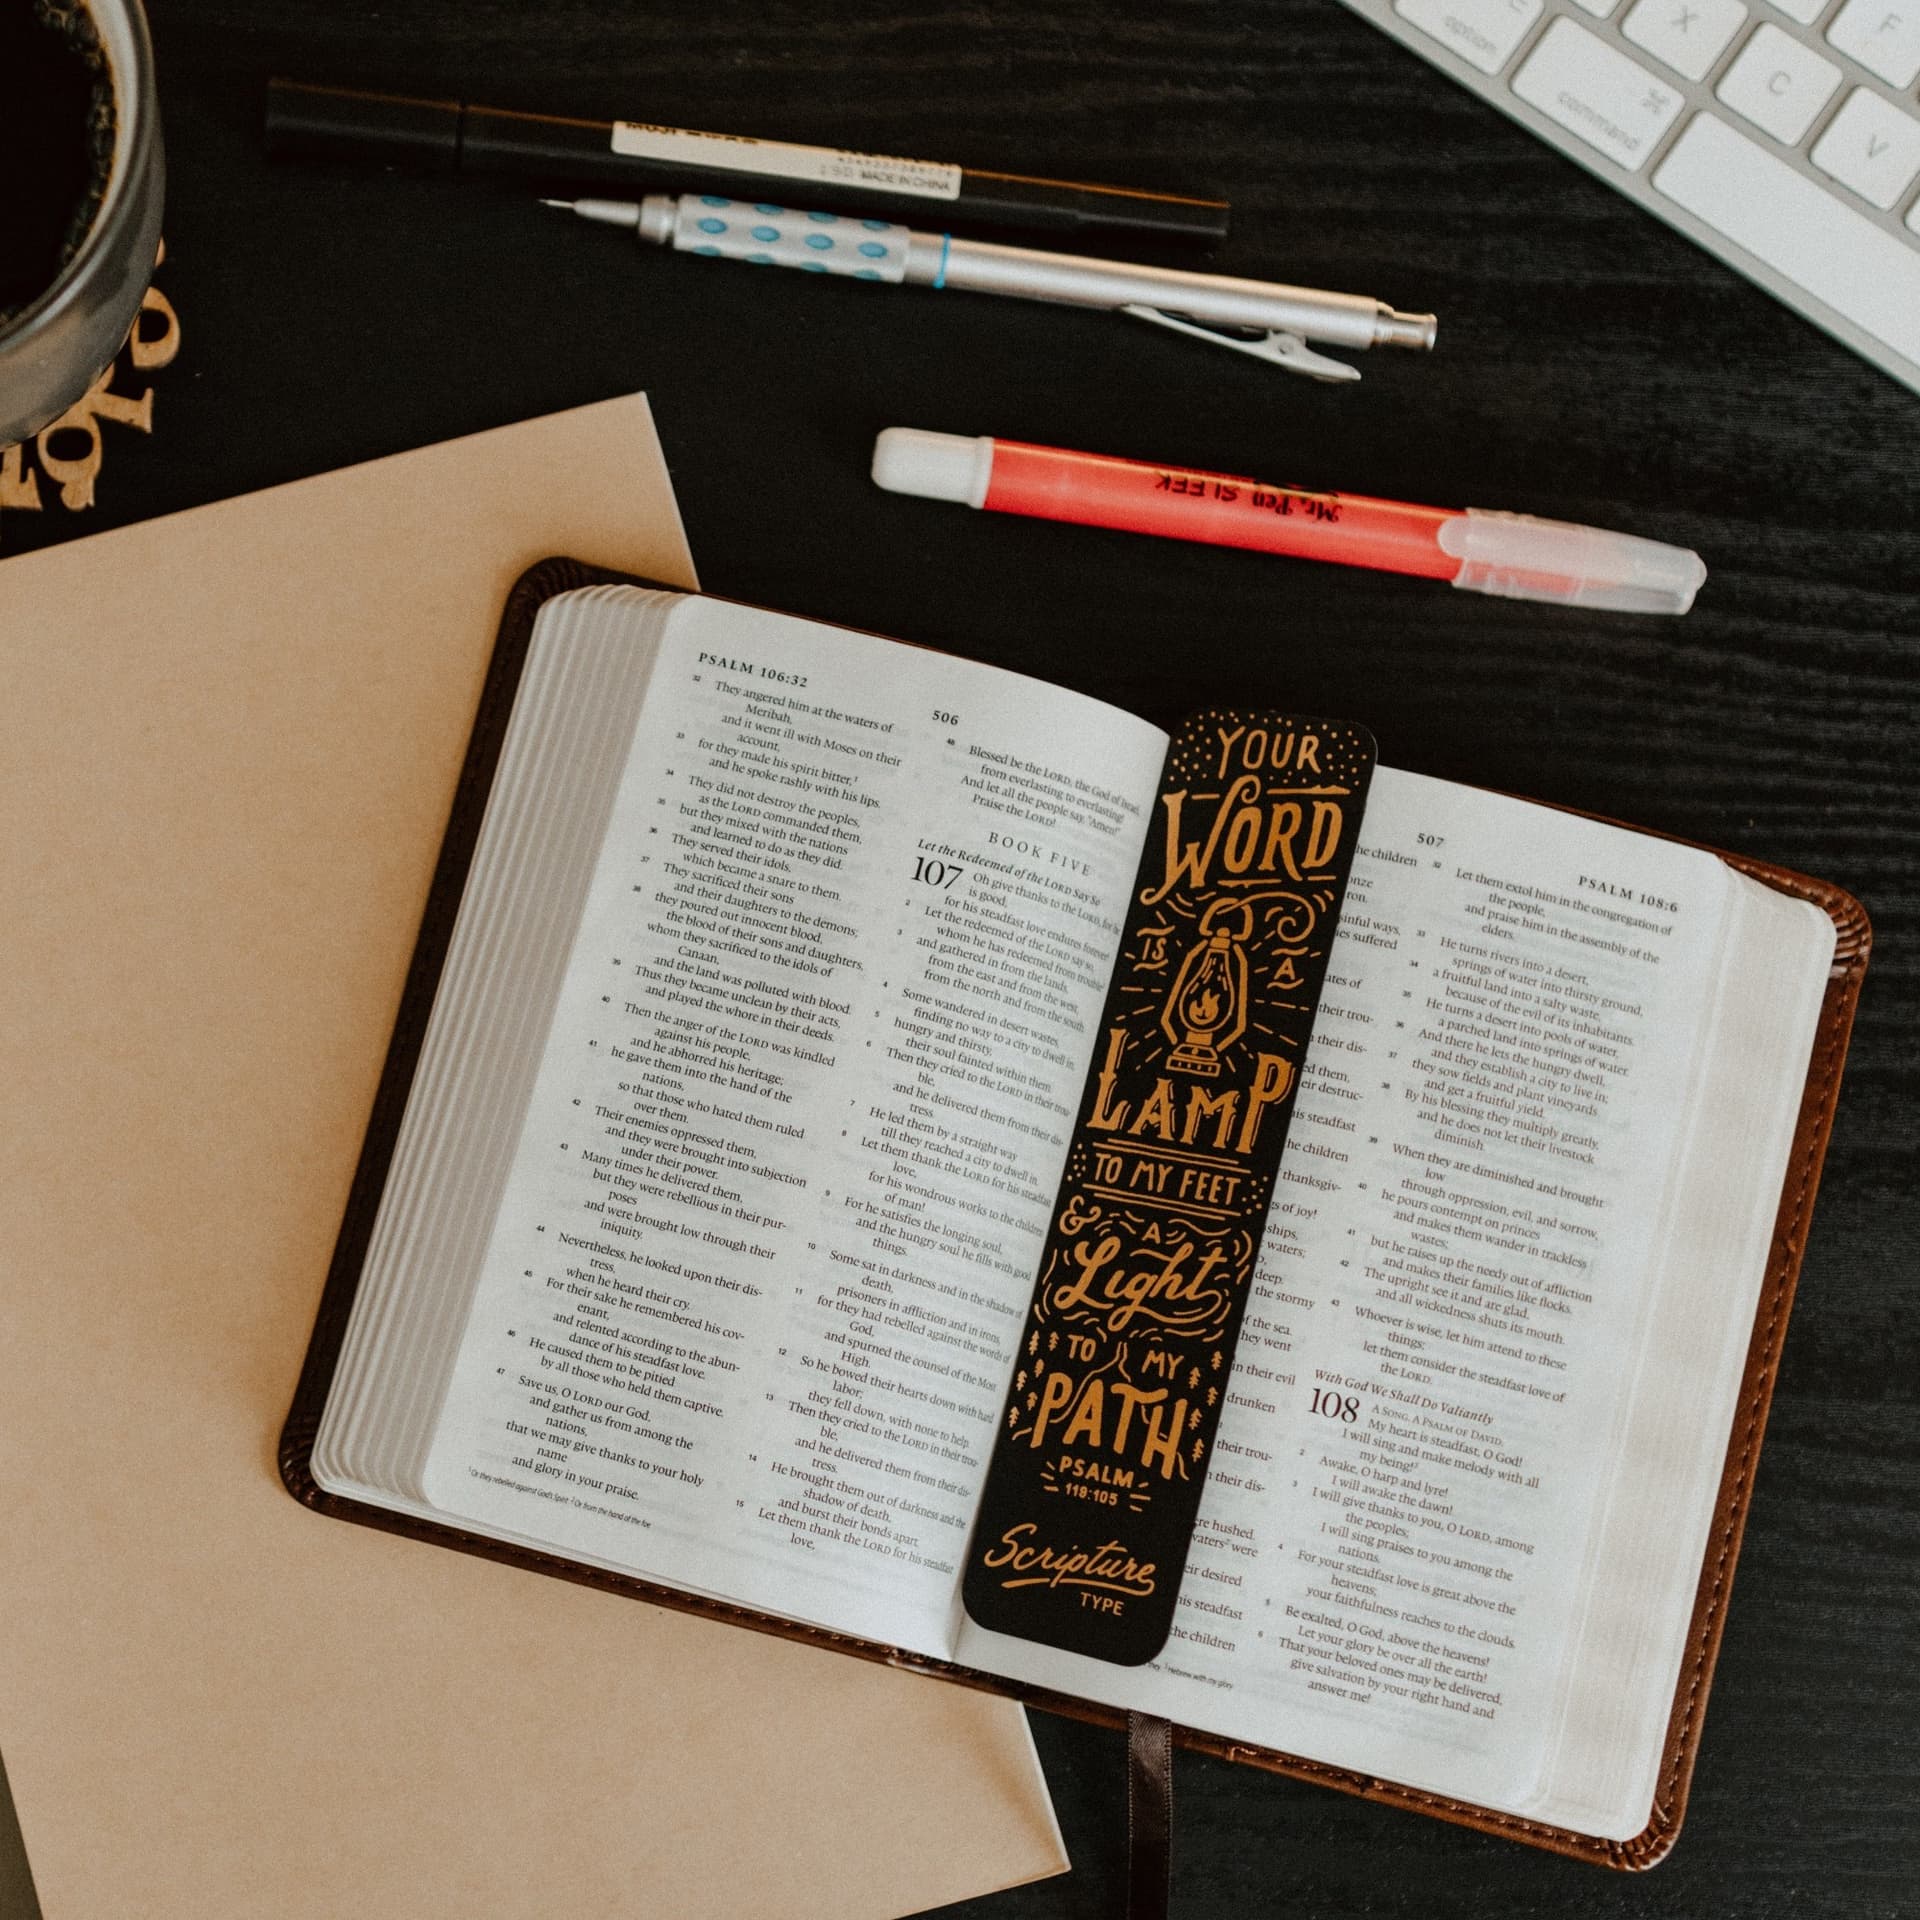 option
command
X
C
V
F
MADE IN CHINA
Mr. Pen SLEEK
PSALM 106:32
506
32 They angered him at the waters of
Meribah,
and it went ill with Moses on their
account,
33 for they made his spirit bitter,1
and he spoke rashly with his lips.
34 They did not destroy the peoples,
as the LORD commanded them,
35 but they mixed with the nations
and learned to do as they did.
36 They served their idols,
which became a snare to them.
37 They sacrificed their sons
and their daughters to the demons;
38 they poured out innocent blood,
the blood of their sons and daughters,
whom they sacrificed to the idols of
Canaan,
and the land was polluted with blood.
39 Thus they became unclean by their acts,
and played the whore in their deeds.
40 Then the anger of the LORD was kindled
against his people,
and he abhorred his heritage;
41 he gave them into the hand of the
nations,
so that those who hated them ruled
over them.
42 Their enemies oppressed them,
and they were brought into subjection
under their power.
43 Many times he delivered them,
but they were rebellious in their pur-
poses
and were brought low through their
iniquity.
44 Nevertheless, he looked upon their dis-
tress,
when he heard their cry.
45 For their sake he remembered his cov-
enant,
and relented according to the abun-
dance of his steadfast love.
46 He caused them to be pitied
by all those who held them captive.
47 Save us, O LORD our God,
and gather us from among the
nations,
that we may give thanks to your holy
name
and glory in your praise.
1 Or they rebelled against God's Spirit 2 Or from the hand of the foe
48 Blessed be the LORD, the God of Israel,
from everlasting to everlasting!
And let all the people say, "Amen!"
Praise the LORD!
BOOK FIVE
Let the Redeemed of the LORD Say So
107 Oh give thanks to the LORD, for he
is good,
for his steadfast love endures forever!
2 Let the redeemed of the LORD say so,
whom he has redeemed from trouble
3 and gathered in from the lands,
from the east and from the west,
from the north and from the south.
4 Some wandered in desert wastes,
finding no way to a city to dwell in;
5 hungry and thirsty,
their soul fainted within them.
6 Then they cried to the LORD in their trou-
ble,
and he delivered them from their dis-
tress.
7 He led them by a straight way
till they reached a city to dwell in.
8 Let them thank the LORD for his steadfast
love,
for his wondrous works to the children
of man!
9 For he satisfies the longing soul,
and the hungry soul he fills with good
things.
10 Some sat in darkness and in the shadow of
death,
prisoners in affliction and in irons,
11 for they had rebelled against the words of
God,
and spurned the counsel of the Most
High.
12 So he bowed their hearts down with hard
labor;
they fell down, with none to help.
13 Then they cried to the LORD in their trou-
ble,
and he delivered them from their dis-
tress.
14 He brought them out of darkness and the
shadow of death,
and burst their bonds apart.
15 Let them thank the LORD for his steadfast
love,
YOUR
WORD
IS A
LAMP
TO MY FEET
& A
Light
TO MY
PATH
PSALM
119:105
Scripture
TYPE
507
PSALM 108:6
he children
onze
ron.
inful ways,
ies suffered
ates of
their trou-
their dis-
ed them,
eir destruc-
is steadfast
he children
thanksgiv-
ts of joy!
ships,
waters;
deep.
the stormy
of the sea.
hey went
in their evil
drunken
their trou-
their dis-
re hushed.
waters2 were
eir desired
his steadfast
the children
they 3 Hebrew with my glory
32 Let them extol him in the congregation of
the people,
and praise him in the assembly of the
elders.
33 He turns rivers into a desert,
springs of water into thirsty ground,
34 a fruitful land into a salty waste,
because of the evil of its inhabitants.
35 He turns a desert into pools of water,
a parched land into springs of water.
36 And there he lets the hungry dwell,
and they establish a city to live in;
37 they sow fields and plant vineyards
and get a fruitful yield.
38 By his blessing they multiply greatly,
and he does not let their livestock
diminish.
39 When they are diminished and brought
low
through oppression, evil, and sorrow,
40 he pours contempt on princes
and makes them wander in trackless
wastes;
41 but he raises up the needy out of affliction
and makes their families like flocks.
42 The upright see it and are glad,
and all wickedness shuts its mouth.
43 Whoever is wise, let him attend to these
things;
let them consider the steadfast love of
the LORD.
With God We Shall Do Valiantly
108 A SONG. A PSALM OF DAVID.
My heart is steadfast, O God!
I will sing and make melody with all
my being!3
2 Awake, O harp and lyre!
I will awake the dawn!
3 I will give thanks to you, O LORD, among
the peoples;
I will sing praises to you among the
nations.
4 For your steadfast love is great above the
heavens;
your faithfulness reaches to the clouds.
5 Be exalted, O God, above the heavens!
Let your glory be over all the earth!
6 That your beloved ones may be delivered,
give salvation by your right hand and
answer me!